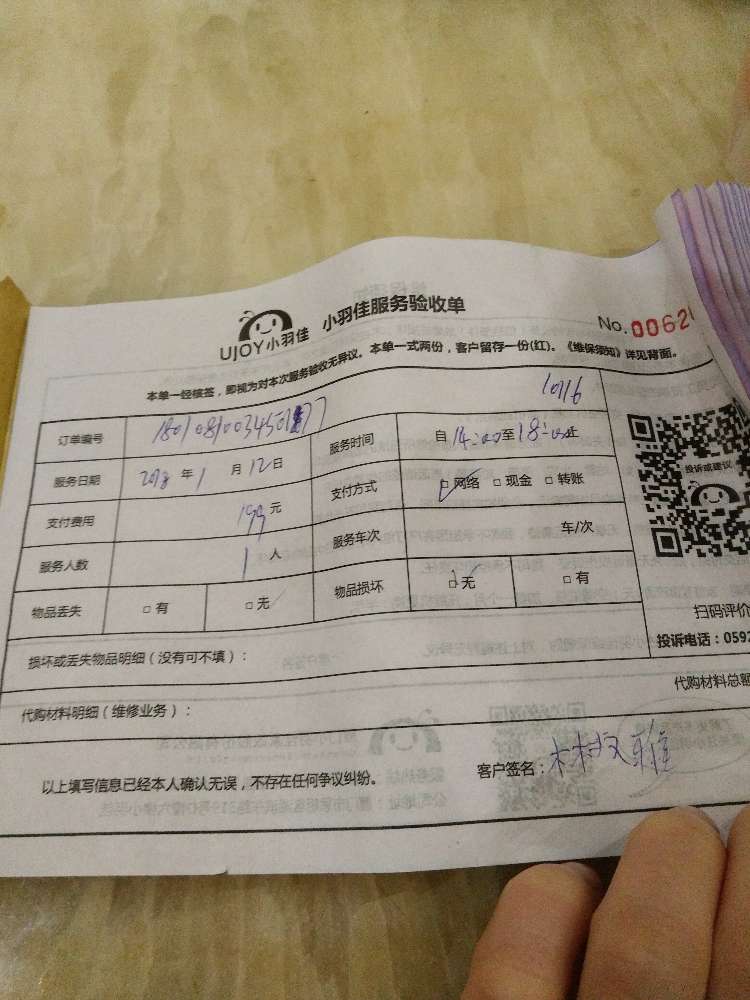 UJOY小羽佳 小羽佳服务验收单
No. 00620
本单一经核签，即视为对本次服务验收无异议。本单一式两份，客户留存一份(红)。《维保须知》详见背面。
10116
订单编号 服务时间 自 14:00 至 18:00 止
服务日期 2018 年 1 月 12 日 支付方式 □ 网络 □ 现金 □ 转账
支付费用 199 元 服务车次 车/次
服务人数 1 人 物品损坏 □ 无 □ 有
物品丢失 □ 有 □ 无
投诉或建议
扫码评价
投诉电话：0592
损坏或丢失物品明细（没有可不填）：
代购材料明细（维修业务）： 代购材料总额
以上填写信息已经本人确认无误，不存在任何争议纠纷。 客户签名：